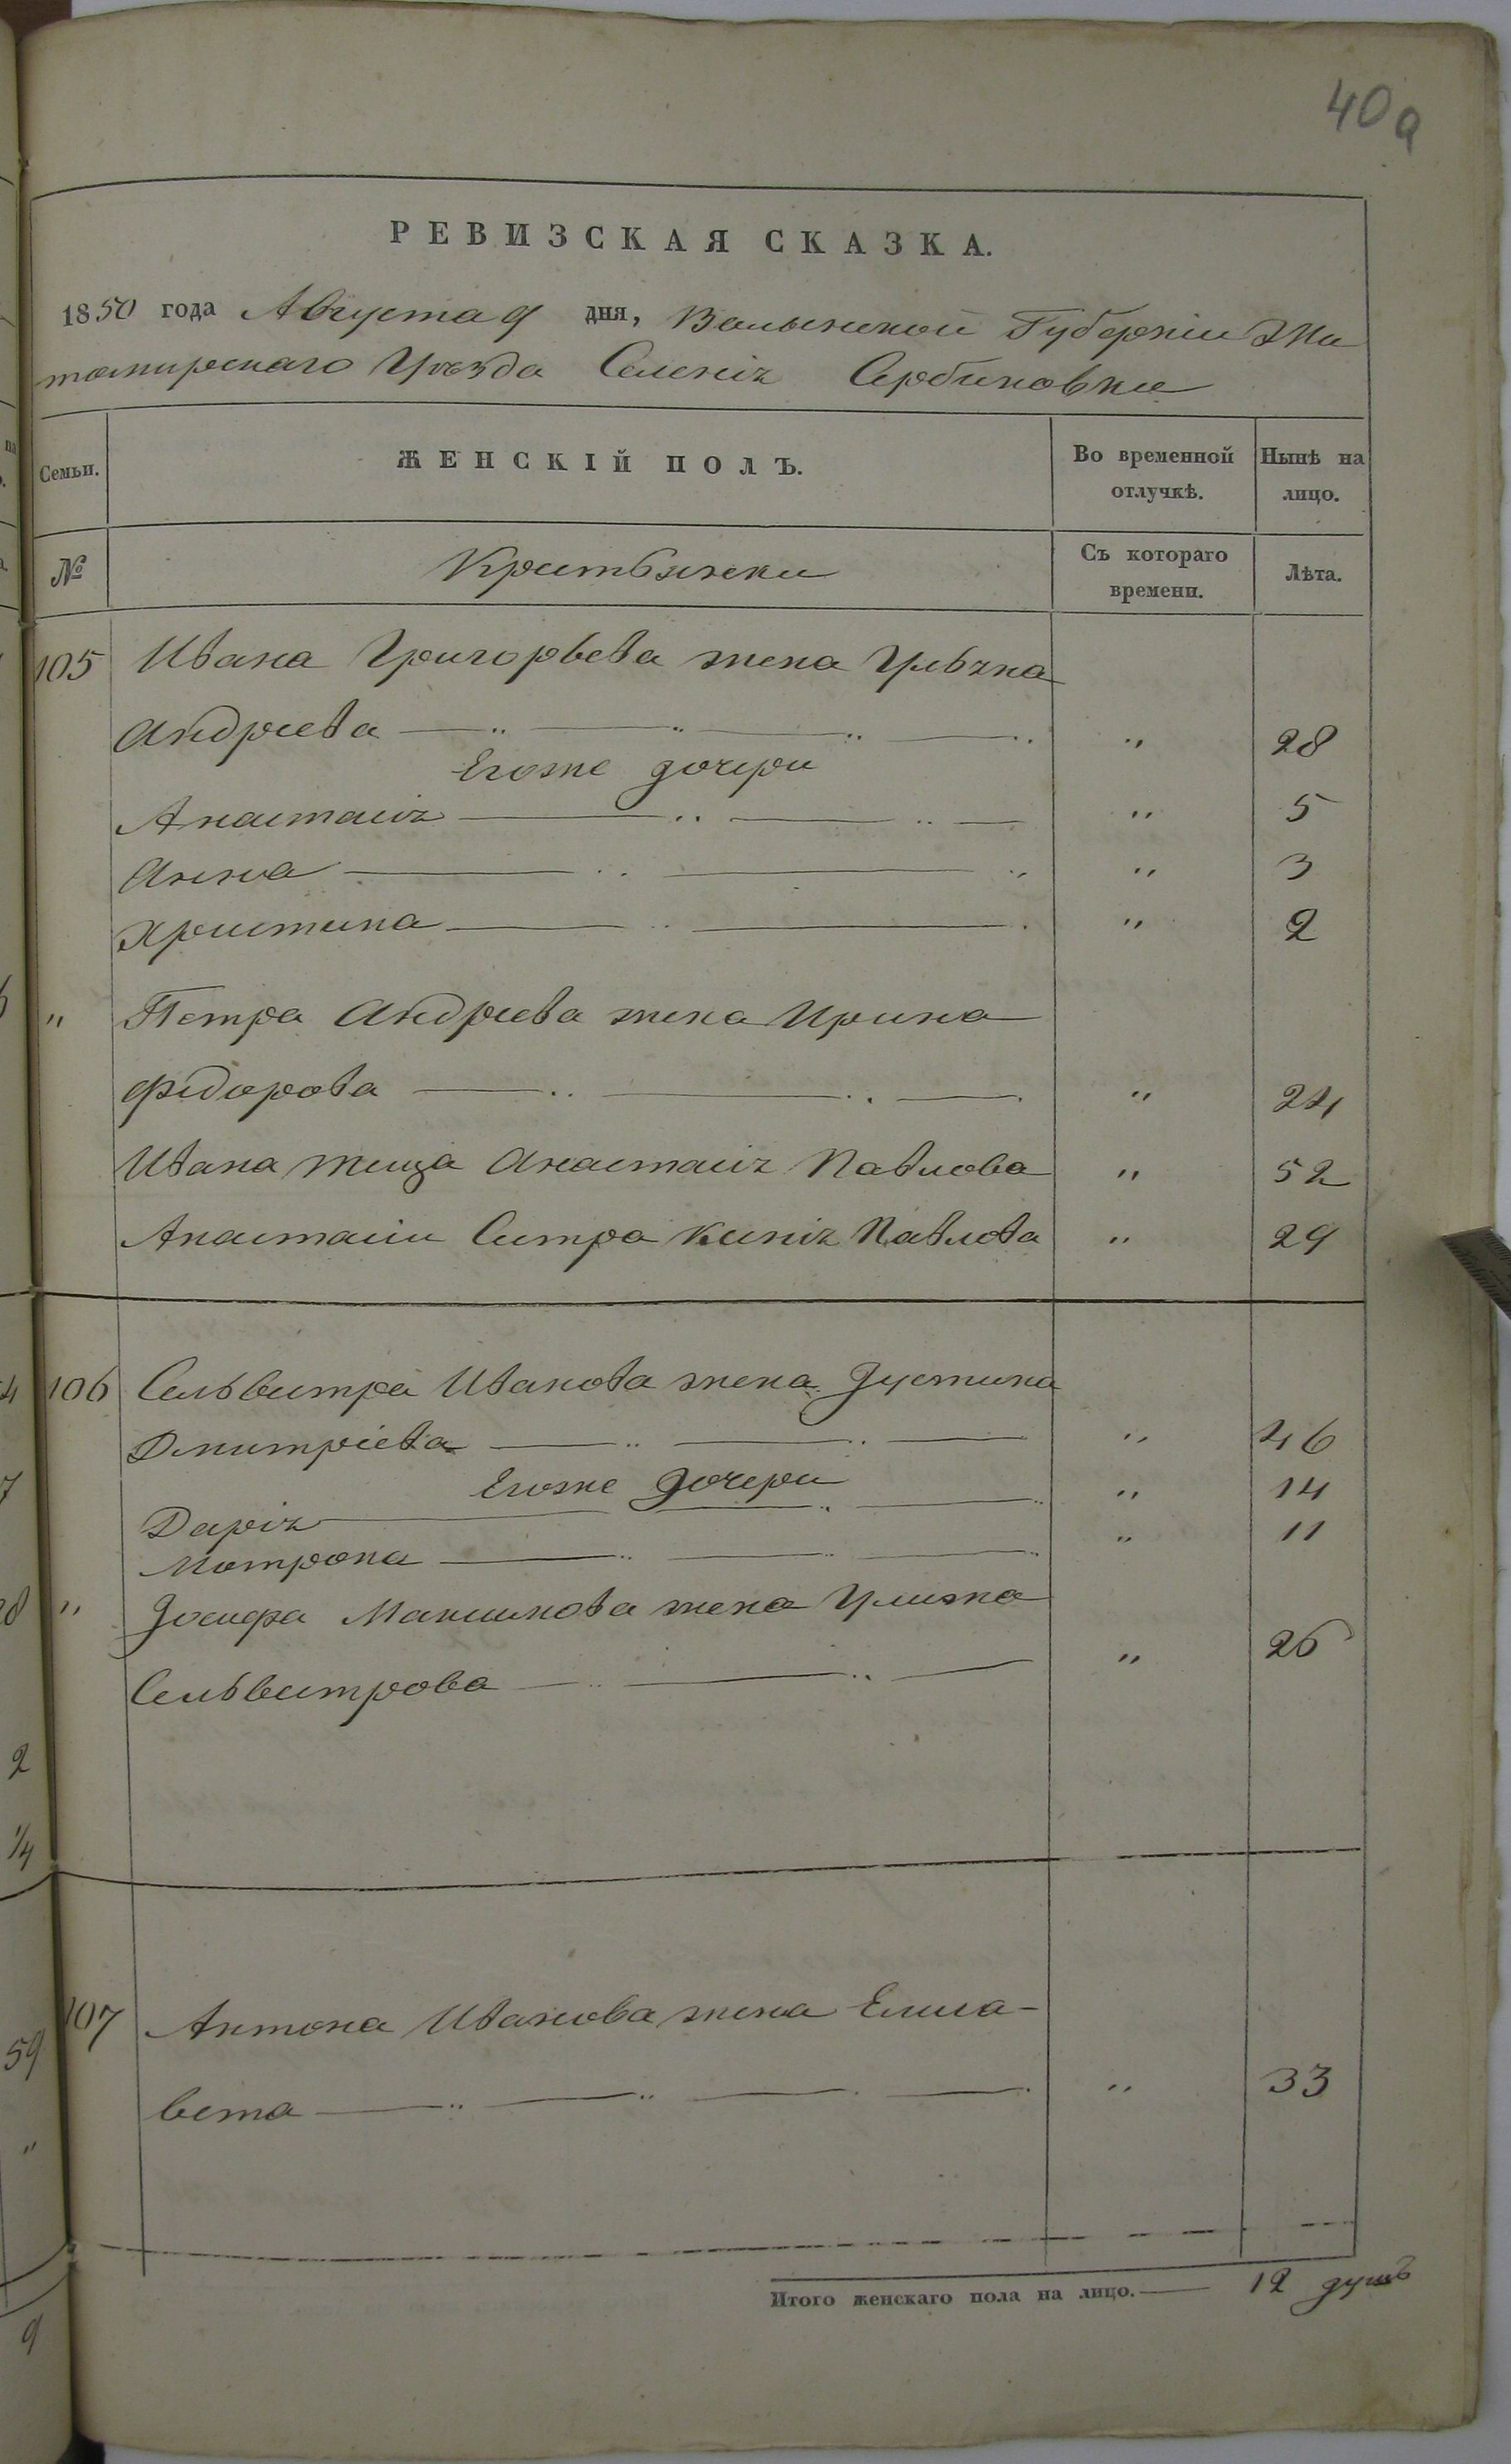 40а
РЕВИЗСКАЯ СКАЗКА.
1850 года Августа 9 дня, Волынской Губерніи Жи
томирскаго Уѣзда Селенія Сербиновки
Семьи. ЖЕНСКІЙ ПОЛЪ. Во временной отлучкѣ. Нынѣ на лицо.
№ Крестьянки Съ котораго времени. Лѣта.
105 Ивана Григорьева жена Ульяна
Андреева „ 28
Егоже дочери
Анастасія „ 5
Анна „ 3
Христина „ 2
„ Петра Андреева жена Ирина
Федорова „ 24
Ивана теща Анастасія Павлова „ 52
Анастасіи Сестра Ксенія Павлова „ 29
106 Сельвестра Иванова жена Іустина
Дмитріева „ 46
Егоже дочери „ 14
Дарія „ 11
Мотрона
„ Іосифа Максимова жена Улияна
Сельвестрова „ 26
107 Антона Иванова жена Елиса-
вета „ 33
Итого женскаго пола на лицо. 12 душъ